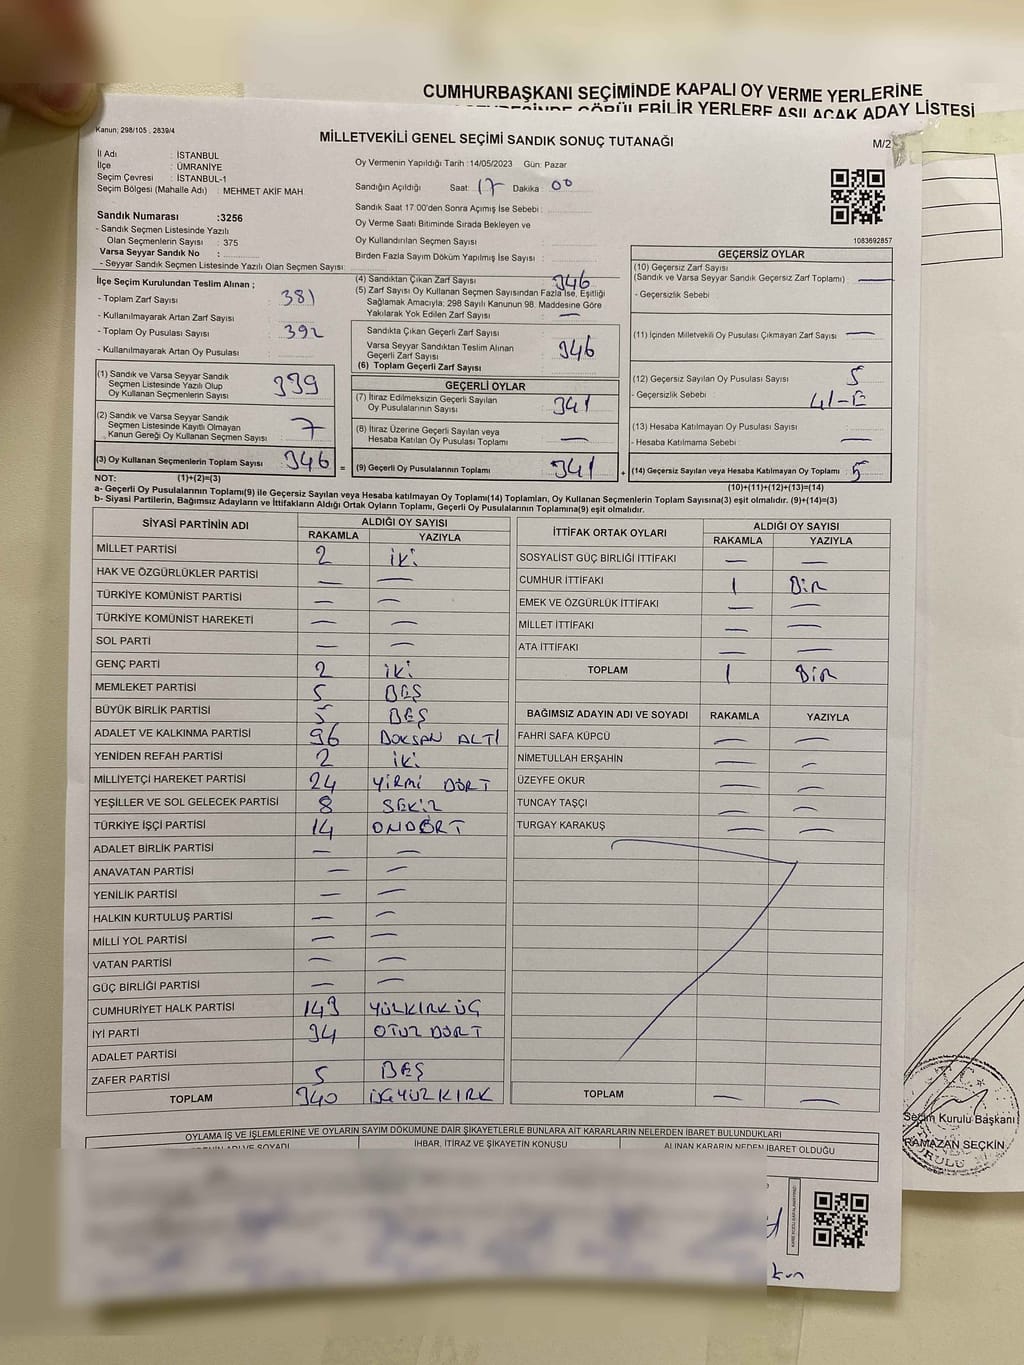 CUMHURBAŞKANI SEÇİMİNDE KAPALI OY VERME YERLERİNE
GÖRÜLEBİLİR YERLERE ASILACAK ADAY LİSTESİ
Kanun; 298/105 , 2839/4
MİLLETVEKİLİ GENEL SEÇİMİ SANDIK SONUÇ TUTANAĞI
M/2
İl Adı : İSTANBUL
İlçe : ÜMRANİYE
Seçim Çevresi : İSTANBUL-1
Seçim Bölgesi (Mahalle Adı) : MEHMET AKİF MAH.
Sandık Numarası :3256
- Sandık Seçmen Listesinde Yazılı
Olan Seçmenlerin Sayısı : 375
Varsa Seyyar Sandık No :
- Seyyar Sandık Seçmen Listesinde Yazılı Olan Seçmen Sayısı:
Oy Vermenin Yapıldığı Tarih :14/05/2023 Gün: Pazar
Sandığın Açıldığı Saat: 17 Dakika : 00
Sandık Saat 17:00'den Sonra Açımış İse Sebebi :
Oy Verme Saati Bitiminde Sırada Bekleyen ve
Oy Kullandırılan Seçmen Sayısı :
Birden Fazla Sayım Döküm Yapılmış İse Sayısı :
1083692857
İlçe Seçim Kurulundan Teslim Alınan ;
- Toplam Zarf Sayısı : 381
- Kullanılmayarak Artan Zarf Sayısı :
- Toplam Oy Pusulası Sayısı : 392
- Kullanılmayarak Artan Oy Pusulası :
(1) Sandık ve Varsa Seyyar Sandık
Seçmen Listesinde Yazılı Olup
Oy Kullanan Seçmenlerin Sayısı : 339
(2) Sandık ve Varsa Seyyar Sandık
Seçmen Listesinde Kayıtlı Olmayan
Kanun Gereği Oy Kullanan Seçmen Sayısı : 7
(3) Oy Kullanan Seçmenlerin Toplam Sayısı : 346 =
(4) Sandıktan Çıkan Zarf Sayısı : 346
(5) Zarf Sayısı Oy Kullanan Seçmen Sayısından Fazla İse, Eşitliği
Sağlamak Amacıyla; 298 Sayılı Kanunun 98. Maddesine Göre
Yakılarak Yok Edilen Zarf Sayısı : —
Sandıkta Çıkan Geçerli Zarf Sayısı :
Varsa Seyyar Sandıktan Teslim Alınan
Geçerli Zarf Sayısı :
(6) Toplam Geçerli Zarf Sayısı : 346
GEÇERLİ OYLAR
(7) İtiraz Edilmeksizin Geçerli Sayılan
Oy Pusulalarının Sayısı : 341
(8) İtiraz Üzerine Geçerli Sayılan veya
Hesaba Katılan Oy Pusulası Toplamı : —
(9) Geçerli Oy Pusulalarının Toplamı : 341 +
GEÇERSİZ OYLAR
(10) Geçersiz Zarf Sayısı
(Sandık ve Varsa Seyyar Sandık Geçersiz Zarf Toplamı) : —
- Geçersizlik Sebebi :
(11) İçinden Milletvekili Oy Pusulası Çıkmayan Zarf Sayısı : —
(12) Geçersiz Sayılan Oy Pusulası Sayısı : 5
- Geçersizlik Sebebi : 4/-E
(13) Hesaba Katılmayan Oy Pusulası Sayısı :
- Hesaba Katılmama Sebebi : —
(14) Geçersiz Sayılan veya Hesaba Katılmayan Oy Toplamı : 5
NOT: (1)+(2)=(3)
(10)+(11)+(12)+(13)=(14)
a- Geçerli Oy Pusulalarının Toplamı(9) ile Geçersiz Sayılan veya Hesaba katılmayan Oy Toplamı(14) Toplamları, Oy Kullanan Seçmenlerin Toplam Sayısına(3) eşit olmalıdır. (9)+(14)=(3)
b- Siyasi Partilerin, Bağımsız Adayların ve İttifakların Aldığı Ortak Oyların Toplamı, Geçerli Oy Pusulalarının Toplamına(9) eşit olmalıdır.
SİYASİ PARTİNİN ADI ALDIĞI OY SAYISI
RAKAMLA YAZIYLA
MİLLET PARTİSİ 2 İKİ
HAK VE ÖZGÜRLÜKLER PARTİSİ — —
TÜRKİYE KOMÜNİST PARTİSİ — —
TÜRKİYE KOMÜNİST HAREKETİ — —
SOL PARTİ — —
GENÇ PARTİ 2 İKİ
MEMLEKET PARTİSİ 5 BEŞ
BÜYÜK BİRLİK PARTİSİ 5 BEŞ
ADALET VE KALKINMA PARTİSİ 96 DOKSAN ALTI
YENİDEN REFAH PARTİSİ 2 İKİ
MİLLİYETÇİ HAREKET PARTİSİ 24 YİRMİ DÖRT
YEŞİLLER VE SOL GELECEK PARTİSİ 8 SEKİZ
TÜRKİYE İŞÇİ PARTİSİ 14 ONDÖRT
ADALET BİRLİK PARTİSİ — —
ANAVATAN PARTİSİ — —
YENİLİK PARTİSİ — —
HALKIN KURTULUŞ PARTİSİ — —
MİLLİ YOL PARTİSİ — —
VATAN PARTİSİ — —
GÜÇ BİRLİĞİ PARTİSİ — —
CUMHURİYET HALK PARTİSİ 143 YÜZKIRKÜÇ
İYİ PARTİ 34 OTUZ DÖRT
ADALET PARTİSİ
ZAFER PARTİSİ 5 BEŞ
TOPLAM 340 ÜÇYÜZKIRK
İTTİFAK ORTAK OYLARI ALDIĞI OY SAYISI
RAKAMLA YAZIYLA
SOSYALİST GÜÇ BİRLİĞİ İTTİFAKI — —
CUMHUR İTTİFAKI 1 BİR
EMEK VE ÖZGÜRLÜK İTTİFAKI — —
MİLLET İTTİFAKI — —
ATA İTTİFAKI — —
TOPLAM 1 BİR
BAĞIMSIZ ADAYIN ADI VE SOYADI RAKAMLA YAZIYLA
FAHRİ SAFA KÜPCÜ — —
NİMETULLAH ERŞAHİN — —
ÜZEYFE OKUR — —
TUNCAY TAŞÇI — —
TURGAY KARAKUŞ — —
TOPLAM — —
OYLAMA İŞ VE İŞLEMLERİNE VE OYLARIN SAYIM DÖKÜMÜNE DAİR ŞİKAYETLERLE BUNLARA AİT KARARLARIN NELERDEN İBARET BULUNDUKLARI
ADI VE SOYADI İHBAR, İTİRAZ VE ŞİKAYETİN KONUSU ALINAN KARARIN NEDEN İBARET OLDUĞU
Seçim Kurulu Başkanı
RAMAZAN SEÇKİN
KURULU